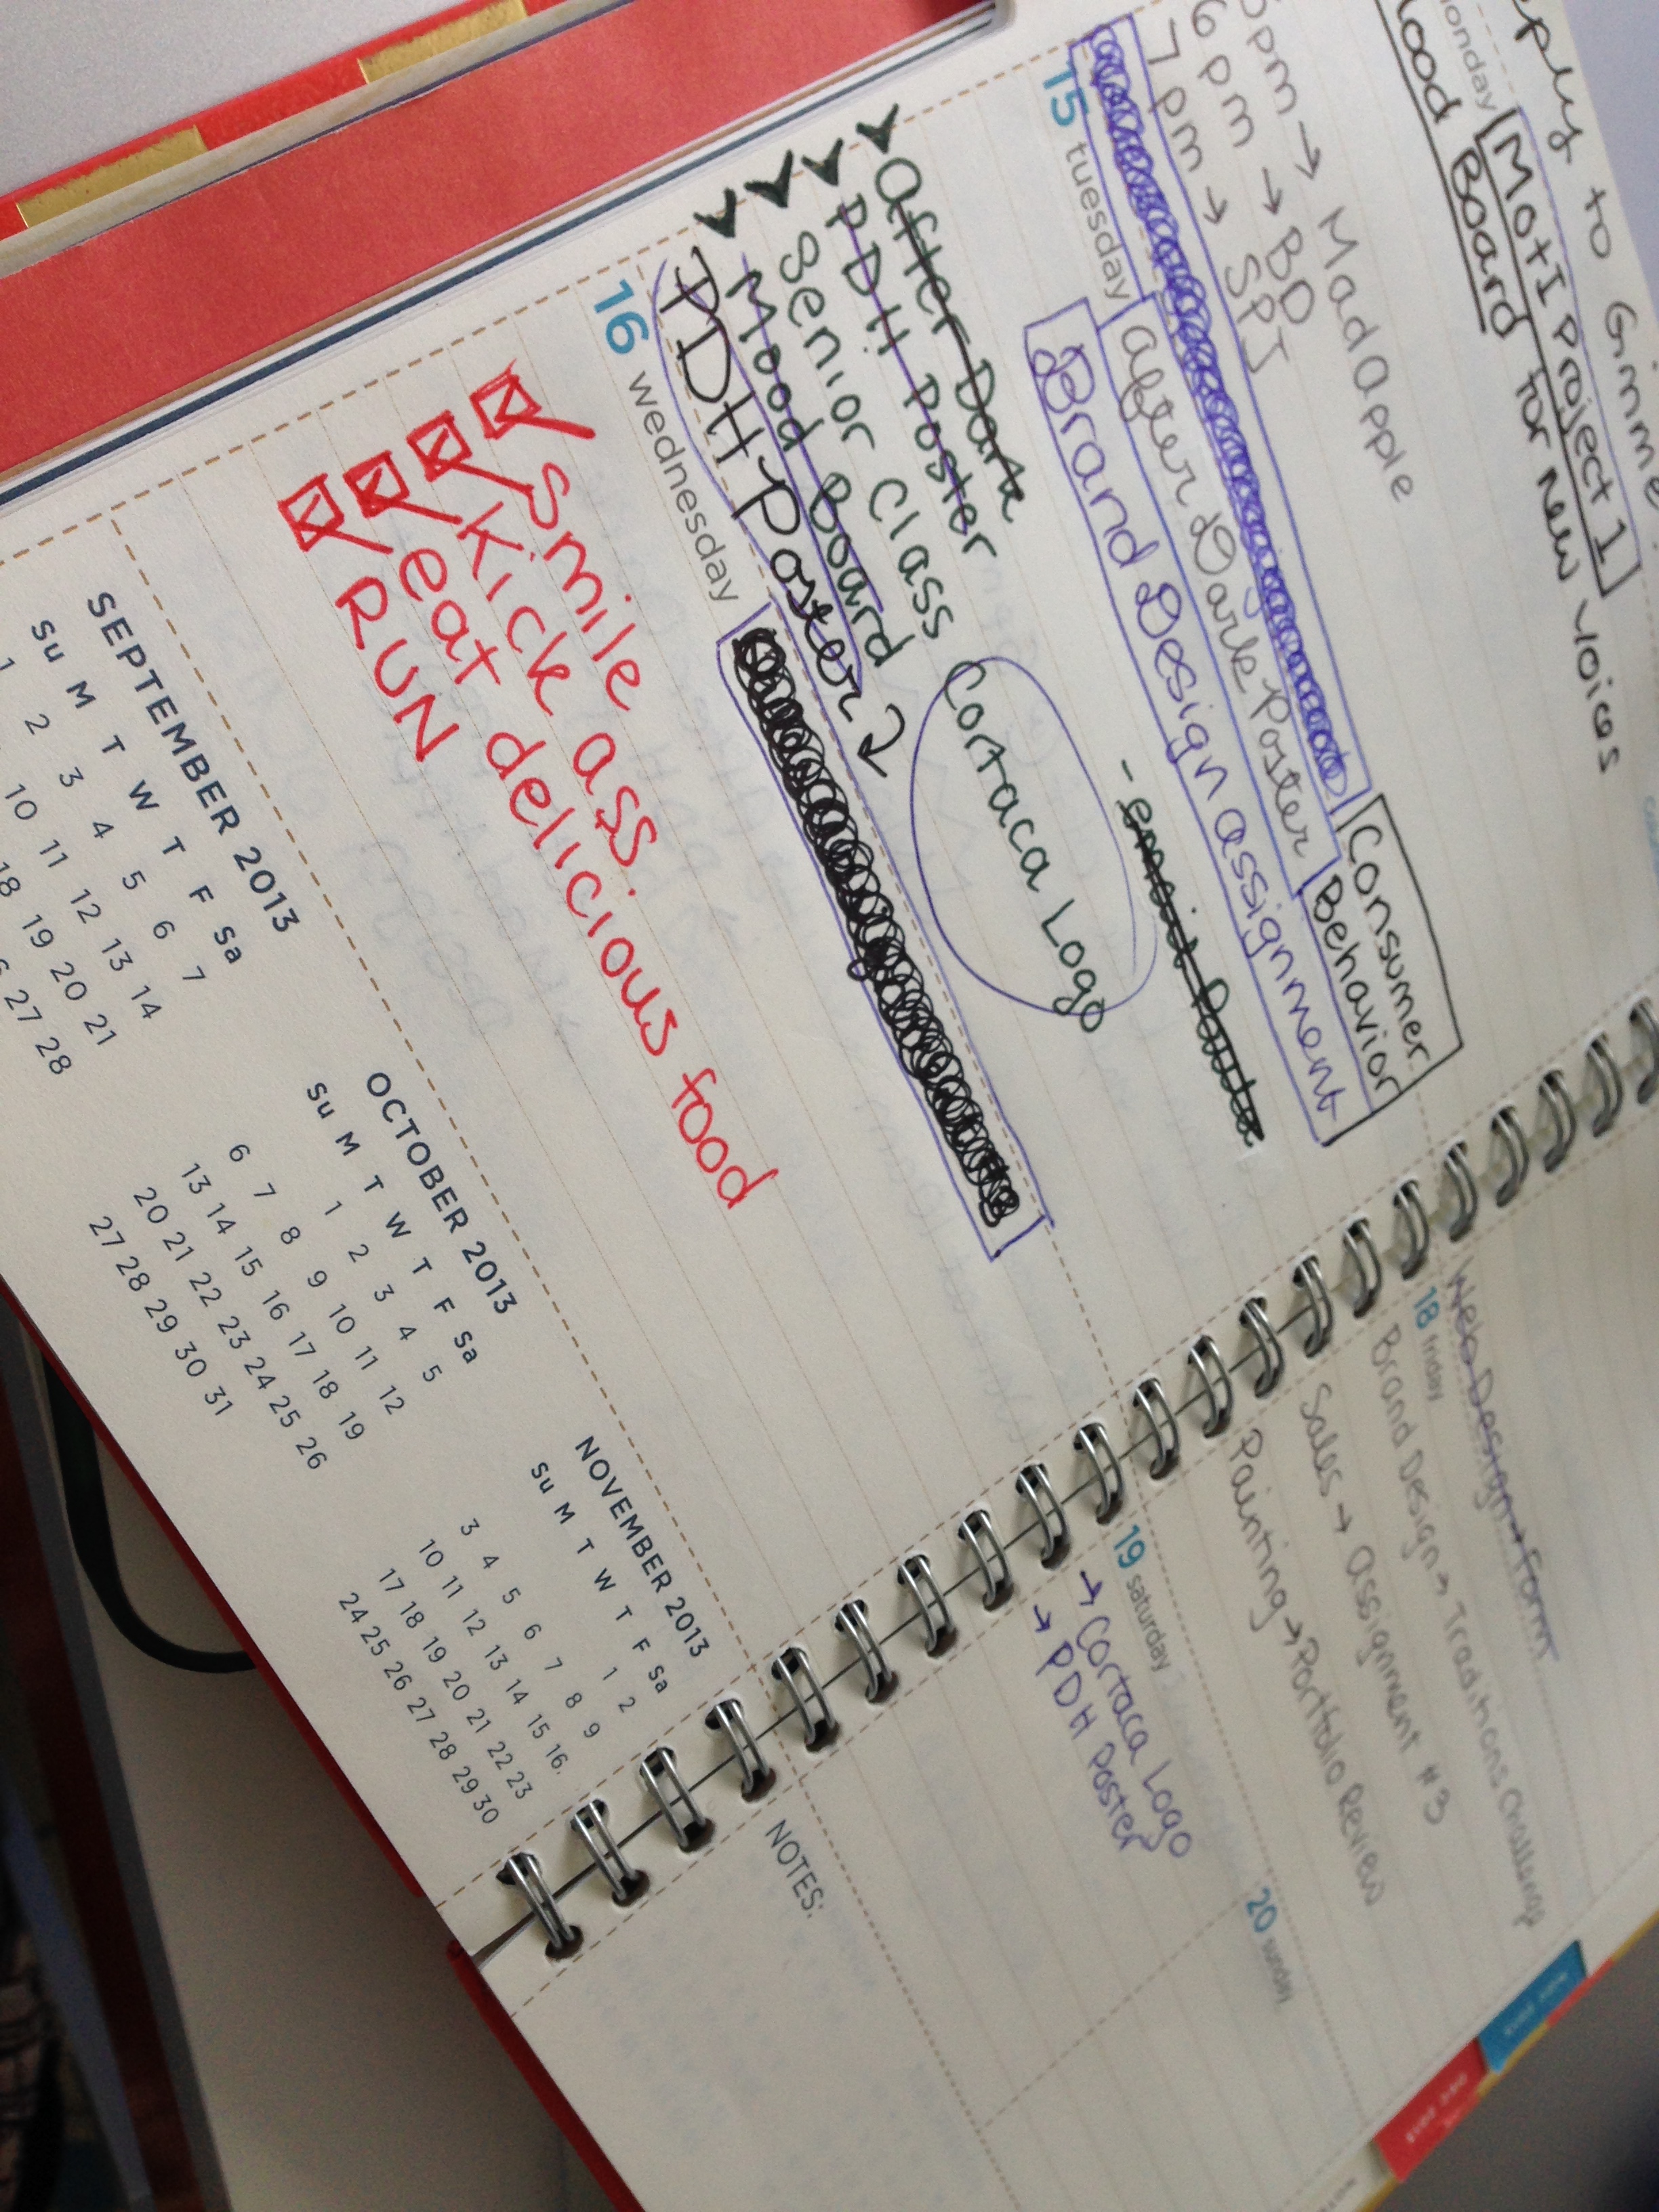 to Gimme
monday Mot I Project 1
Board for New Voices
pm → Mad Apple
6 pm → BD
7 pm → SPJ
Consumer
Behavior
15 tuesday After Dark Poster
Brand Design assignment
After Dark
PDH Poster
Senior Class
Cortaca Logo
Mood Board
PDH Poster
16 wednesday
Smile
Kick ass
eat delicious food
RUN
SEPTEMBER 2013
Su M T W T F Sa
1 2 3 4 5 6 7
10 11 12 13 14
18 19 20 21
27 28
OCTOBER 2013
Su M T W T F Sa
1 2 3 4 5
6 7 8 9 10 11 12
13 14 15 16 17 18 19
20 21 22 23 24 25 26
27 28 29 30 31
NOVEMBER 2013
Su M T W T F Sa
1 2
3 4 5 6 7 8 9
10 11 12 13 14 15 16
17 18 19 20 21 22 23
24 25 26 27 28 29 30
Web Design → Form
18 friday
Brand Design → Traditions Challenge
Sales → Assignment #3
Painting → Portfolio Review
19 saturday
→ Cortaca Logo
→ PDH Poster
20 sunday
NOTES: